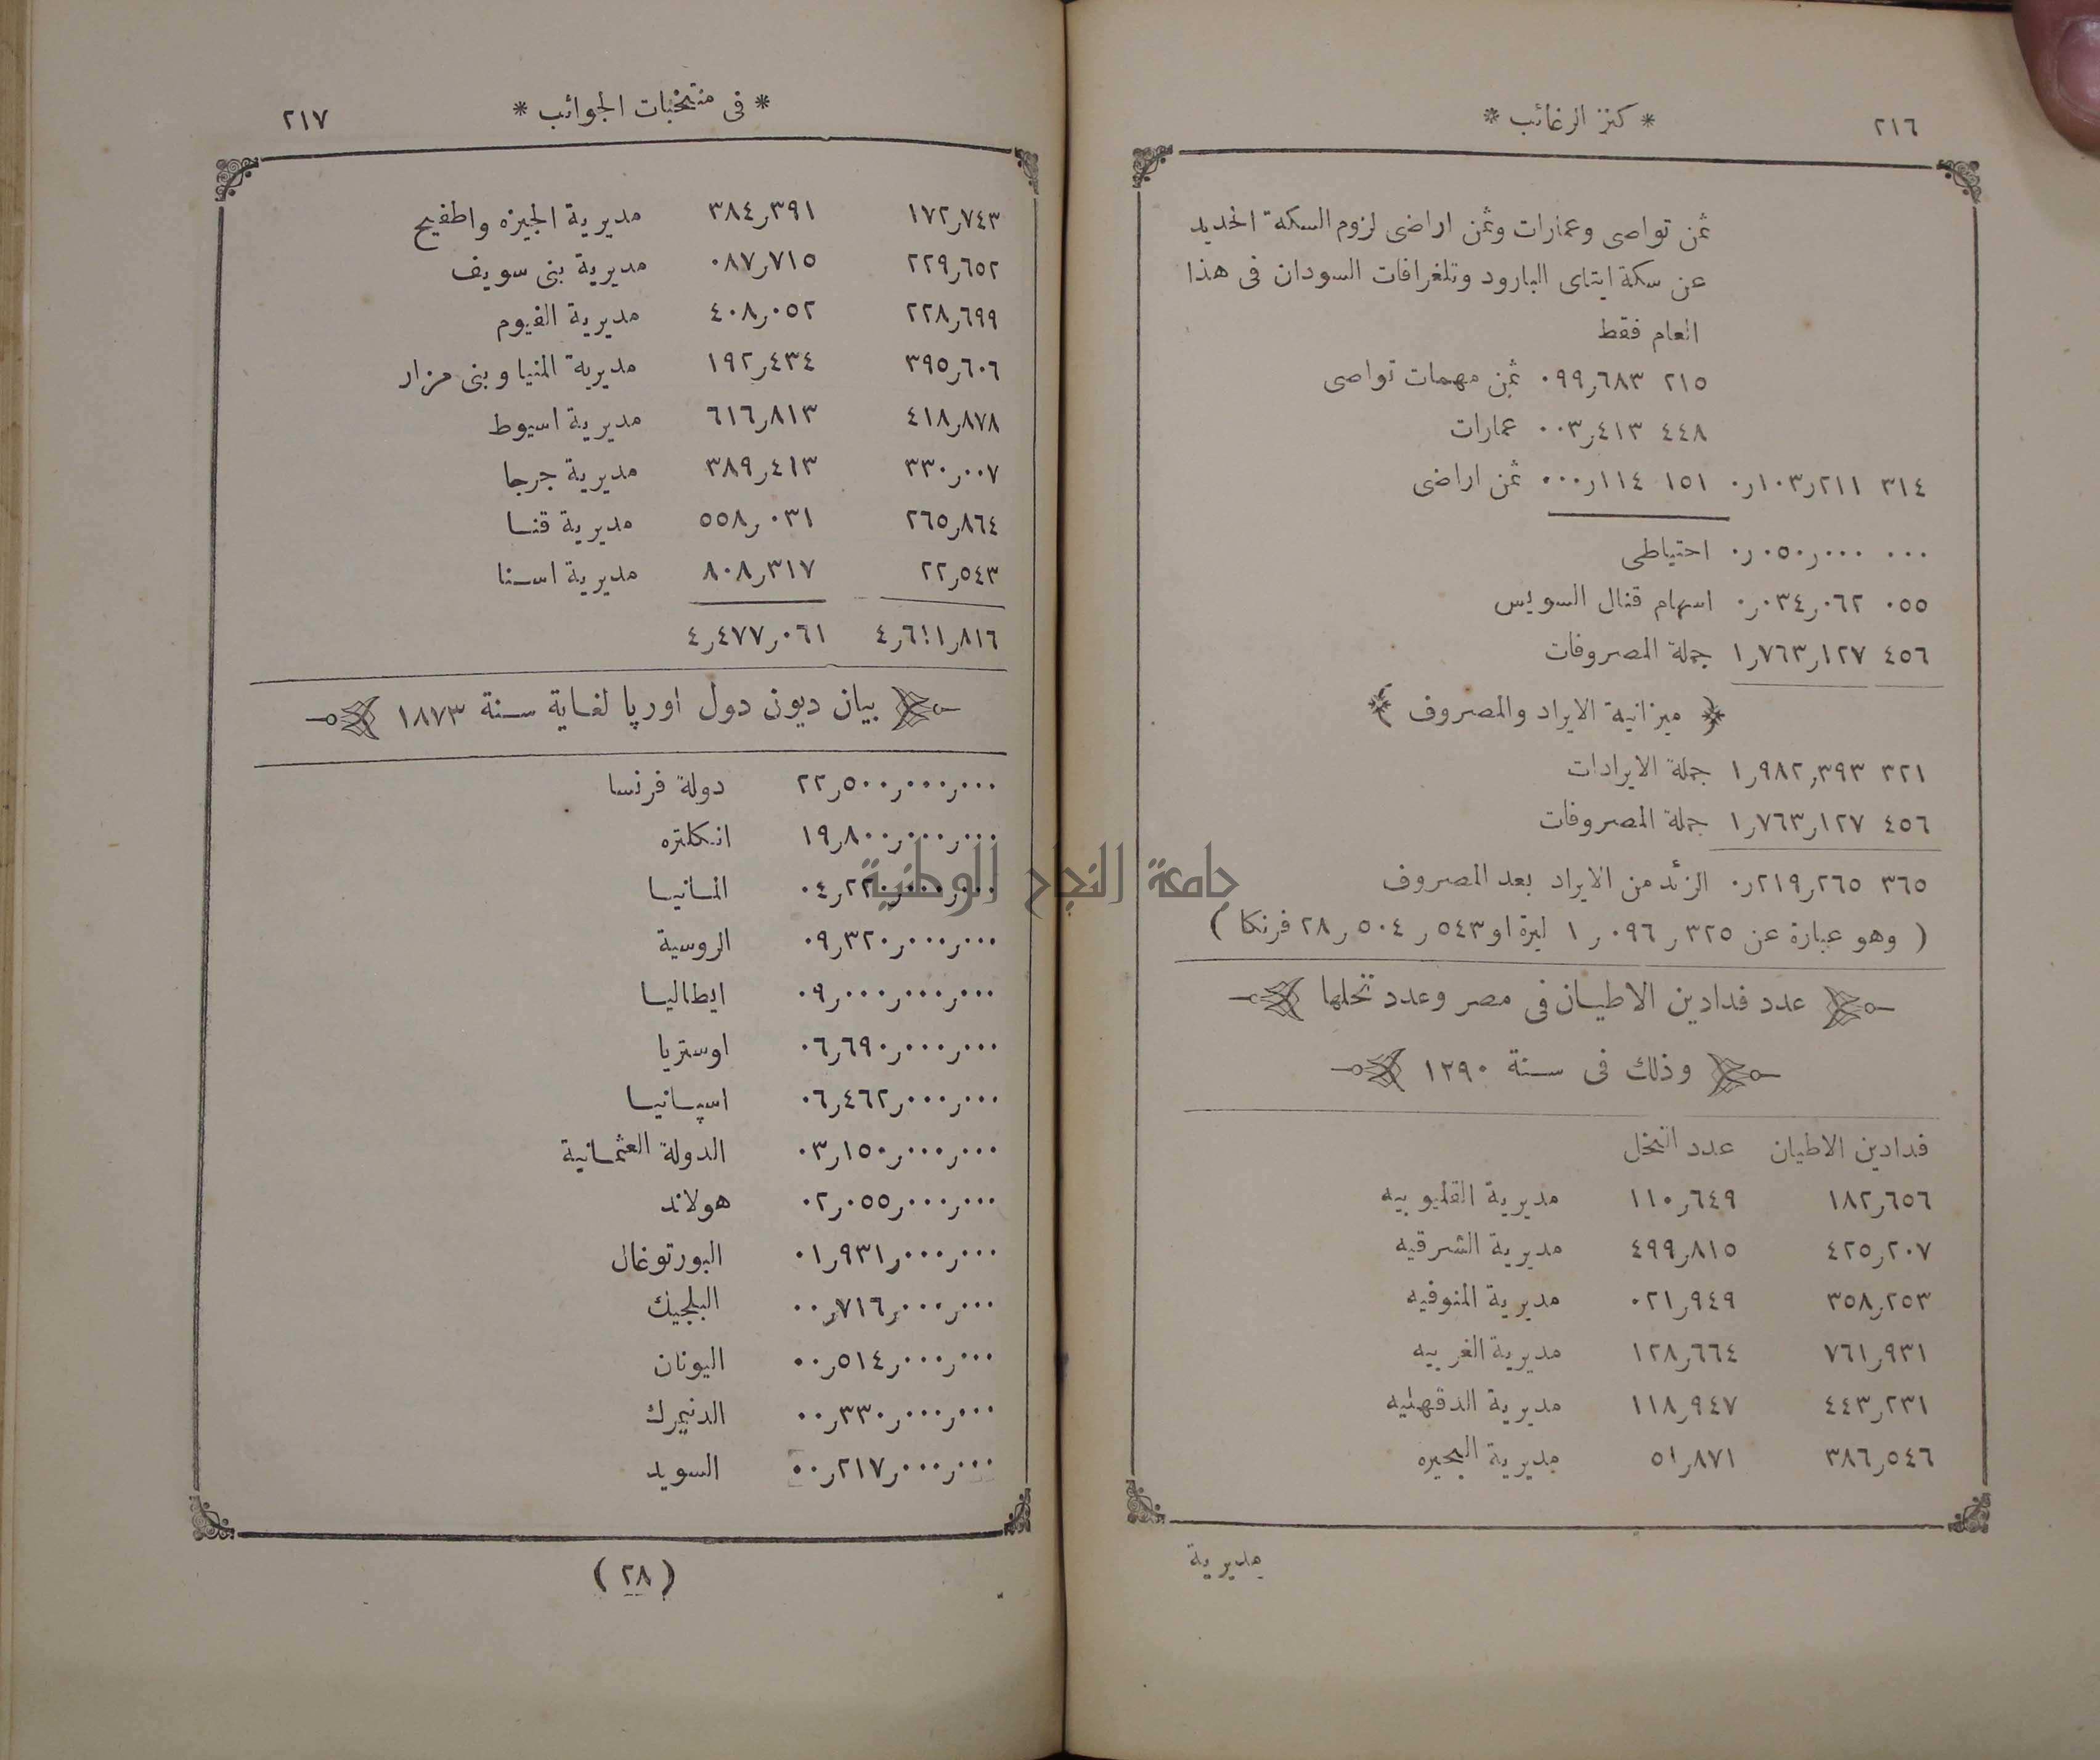 ٢١٦
* كنز الرغائب *
ثمن تواصى وعمارات وثمن اراضى لزوم السكة الحديد
عن سكة ايتاى البارود وتلغرافات السودان فى هذا
العام فقط
٢١٥ ٠٩٩٫٦٨٣ ثمن مهمات تواصى
٤٤٨ ٠٠٣٫٤١٣ عمارات
٣١٤ ٠٫١٠٣٫٢١١ ١٥١ ٠٠٠٫١١٤ ثمن اراضى
٠٠٠ ٠٫٠٥٠٫٠٠٠ احتياطى
٠٥٥ ٠٫٠٣٤٫٠٦٢ اسهام قنال السويس
٤٥٦ ١٫٧٦٣٫١٢٧ جملة المصروفات
﴿ ميزانية الايراد والمصروف ﴾
٣٢١ ١٫٩٨٢٫٣٩٣ جملة الايرادات
٤٥٦ ١٫٧٦٣٫١٢٧ جملة المصروفات
٣٦٥ ٠٫٢١٩٫٢٦٥ الزئد من الايراد بعد المصروف
( وهو عبارة عن ١٫٠٩٦٫٣٢٥ ليرة او ٢٨٫٥٠٤٫٥٤٣ فرنكا )
عدد فدادين الاطيان فى مصر وعدد نخلها
وذلك فى سنة ١٢٩٠
فدادين الاطيان عدد النخل
١٨٢٫٦٥٦ ١١٠٫٦٤٩ مديرية القليوبيه
٤٢٥٫٢٠٧ ٤٩٩٫٨١٥ مديرية الشرقيه
٣٥٨٫٢٥٣ ٠٢١٫٩٤٩ مديرية المنوفيه
٧٦١٫٩٣١ ١٢٨٫٦٦٤ مديرية الغربيه
٤٤٣٫٢٣١ ١١٨٫٩٤٧ مديرية الدقهليه
٣٨٦٫٥٤٦ ٥١٫٨٧١ مديرية البحيره
مديرية
* فى منتخبات الجوائب *
٢١٧
١٧٢٫٧٤٣ ٣٨٤٫٣٩١ مديرية الجيزه واطفيح
٢٢٩٫٦٥٢ ٠٨٧٫٧١٥ مديرية بنى سويف
٢٢٨٫٦٩٩ ٤٠٨٫٠٥٢ مديرية الفيوم
٣٩٥٫٦٠٦ ١٩٢٫٤٣٤ مديرية المنيا وبنى مزار
٤١٨٫٨٧٨ ٦١٦٫٨١٣ مديرية اسيوط
٣٣٠٫٠٠٧ ٣٨٩٫٤١٣ مديرية جرجا
٢٦٥٫٨٦٤ ٥٥٨٫٠٣١ مديرية قنا
٢٢٫٥٤٣ ٨٠٨٫٣١٧ مديرية اسنا
٤٫٦١١٫٨١٦ ٤٫٤٧٧٫٠٦١
بيان ديون دول اورپا لغاية سنة ١٨٧٣
٢٢٫٥٠٠٫٠٠٠٫٠٠٠ دولة فرنسا
١٩٫٨٠٠٫٠٠٠٫٠٠٠ انكلتره
٠٤٫٢٢٠٫٠٠٠٫٠٠٠ المانيا
٠٩٫٣٢٠٫٠٠٠٫٠٠٠ الروسية
٠٩٫٠٠٠٫٠٠٠٫٠٠٠ ايطاليا
٠٦٫٦٩٠٫٠٠٠٫٠٠٠ اوستريا
٠٦٫٤٦٢٫٠٠٠٫٠٠٠ اسپانيا
٠٣٫١٥٠٫٠٠٠٫٠٠٠ الدولة العثمانية
٠٢٫٠٥٥٫٠٠٠٫٠٠٠ هولاند
٠١٫٩٣١٫٠٠٠٫٠٠٠ البورتوغال
٠٠٫٧١٦٫٠٠٠٫٠٠٠ البلجيك
٠٠٫٥١٤٫٠٠٠٫٠٠٠ اليونان
٠٠٫٣٣٠٫٠٠٠٫٠٠٠ الدنيمرك
٠٠٫٢١٧٫٠٠٠٫٠٠٠ السويد
( ٢٨ )
جامعة النجاح الوطنية